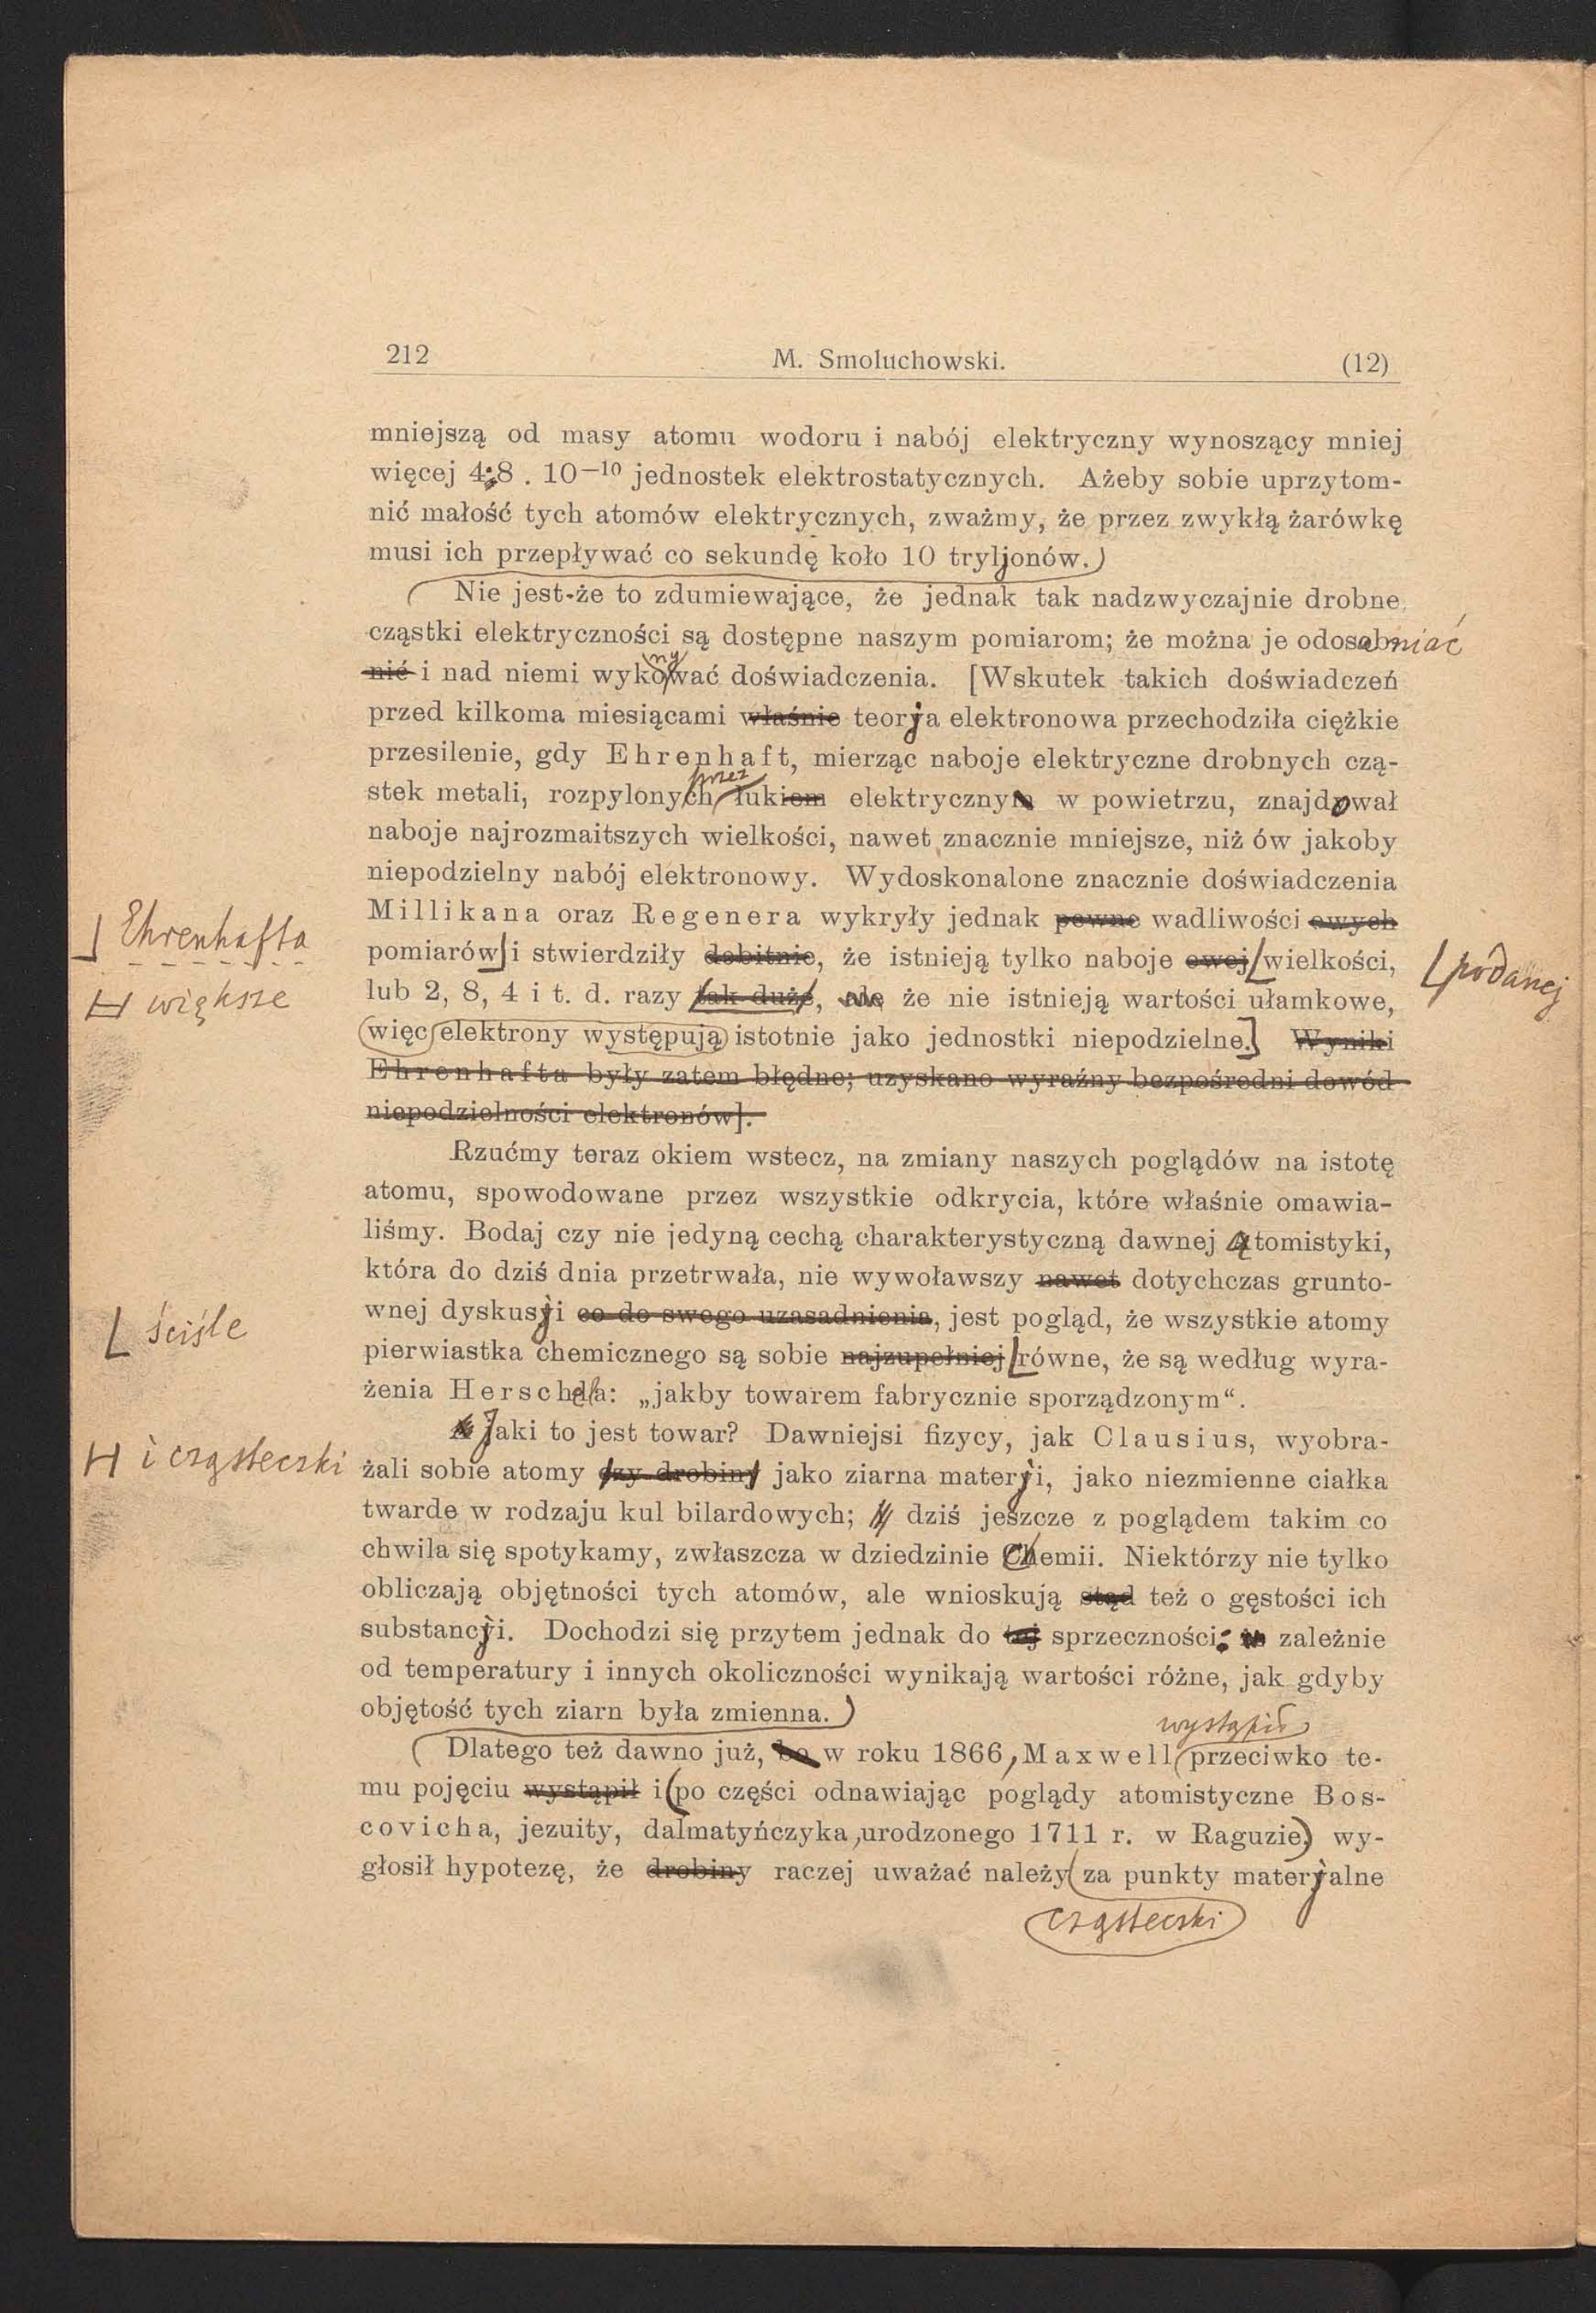 212 M. Smoluchowski. (12)
mniejszą od masy atomu wodoru i nabój elektryczny wynoszący mniej
więcej 4,8 . 10—10 jednostek elektrostatycznych. Ażeby sobie uprzytom-
nić małość tych atomów elektrycznych, zważmy, że przez zwykłą żarówkę
musi ich przepływać co sekundę koło 10 tryljonów.
Nie jest-że to zdumiewające, że jednak tak nadzwyczajnie drobne
cząstki elektryczności są dostępne naszym pomiarom; że można je odosabniać
nić i nad niemi wykonywać doświadczenia. [Wskutek takich doświadczeń
przed kilkoma miesiącami właśnie teorja elektronowa przechodziła ciężkie
przesilenie, gdy Ehrenhaft, mierząc naboje elektryczne drobnych czą-
przez
stek metali, rozpylonych łukiem elektrycznym w powietrzu, znajdował
naboje najrozmaitszych wielkości, nawet znacznie mniejsze, niż ów jakoby
niepodzielny nabój elektronowy. Wydoskonalone znacznie doświadczenia
Millikana oraz Regenera wykryły jednak pewne wadliwości owych
Ehrenhafta
pomiarów i stwierdziły dobitnie, że istnieją tylko naboje owej wielkości,
podanej
większe
lub 2, 8, 4 i t. d. razy tak duże, ale że nie istnieją wartości ułamkowe,
więc elektrony występują istotnie jako jednostki niepodzielne.] Wyniki
Ehrenhafta były zatem błędne; uzyskano wyraźny bezpośredni dowód
niepodzielności elektronów].
Rzućmy teraz okiem wstecz, na zmiany naszych poglądów na istotę
atomu, spowodowane przez wszystkie odkrycia, które właśnie omawia-
liśmy. Bodaj czy nie jedyną cechą charakterystyczną dawnej Atomistyki,
która do dziś dnia przetrwała, nie wywoławszy nawet dotychczas grunto-
wnej dyskusji co do swego uzasadnienia, jest pogląd, że wszystkie atomy
ściśle
pierwiastka chemicznego są sobie najzupełniej równe, że są według wyra-
żenia Herschela: „jakby towarem fabrycznie sporządzonym“.
Jaki to jest towar? Dawniejsi fizycy, jak Clausius, wyobra-
i cząsteczki
żali sobie atomy czy drobiny jako ziarna materji, jako niezmienne ciałka
twarde w rodzaju kul bilardowych; dziś jeszcze z poglądem takim co
chwila się spotykamy, zwłaszcza w dziedzinie Chemii. Niektórzy nie tylko
obliczają objętności tych atomów, ale wnioskują stąd też o gęstości ich
substancji. Dochodzi się przytem jednak do tej sprzeczności: zależnie
od temperatury i innych okoliczności wynikają wartości różne, jak gdyby
objętość tych ziarn była zmienna.
wystąpił
Dlatego też dawno już, bo w roku 1866, Maxwell przeciwko te-
mu pojęciu wystąpił i po części odnawiając poglądy atomistyczne Bos-
covicha, jezuity, dalmatyńczyka, urodzonego 1711 r. w Raguzie, wy-
głosił hypotezę, że drobiny raczej uważać należy za punkty materjalne
cząsteczki